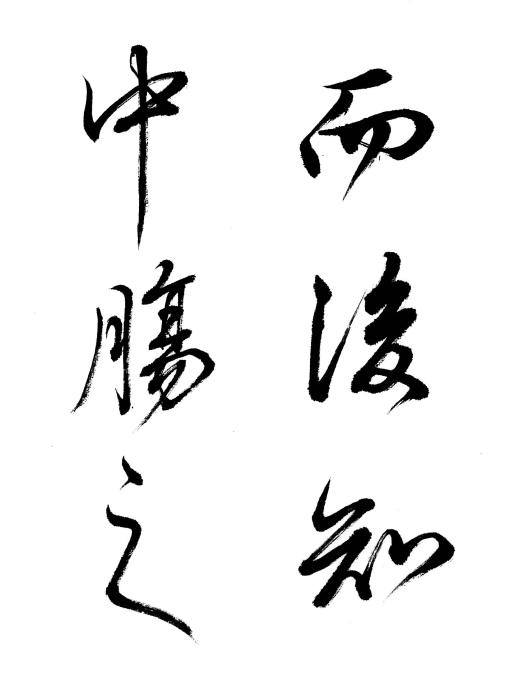 而後知
中腸之